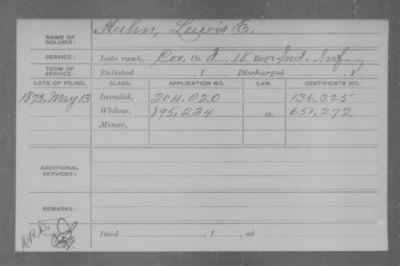 NAME OF SOLDIER: Hahn, Lewis E.
SERVICE: Late rank, Co. I, 18 Reg't Ind. Inf.
TERM OF SERVICE: Enlisted , 1 Discharged , 1
DATE OF FILING. CLASS. APPLICATION NO. LAW. CERTIFICATE NO.
1875, May 13 Invalid, 204,020 136,325
Widow, 895,234 a 651,272
Minor,
ADDITIONAL SERVICES:
REMARKS:
Died , 1 , at